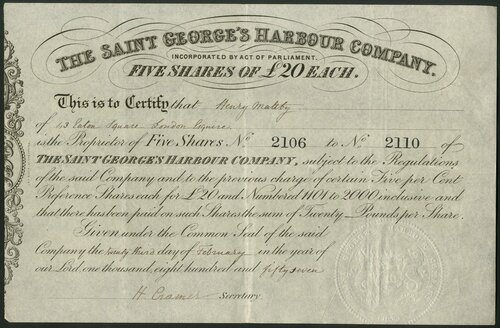 THE SAINT GEORGE'S HARBOUR COMPANY.
INCORPORATED BY ACT OF PARLIAMENT.
FIVE SHARES OF £20 EACH.
This is to Certify that Henry Maltby
of 43 Eaton Square London Esquire
is the Proprietor of Five Shares No. 2106 to No. 2110 of
THE SAINT GEORGE'S HARBOUR COMPANY, subject to the Regulations
of the said Company and to the previous charge of certain Five per Cent
Preference Shares each for £20 and Numbered 1401 to 2000 inclusive and
that there has been paid on such Shares the sum of Twenty Pounds per Share.
Given under the Common Seal of the said
Company the twenty third day of February in the year of
our Lord one thousand eight hundred and fifty seven
H. Cramer Secretary.